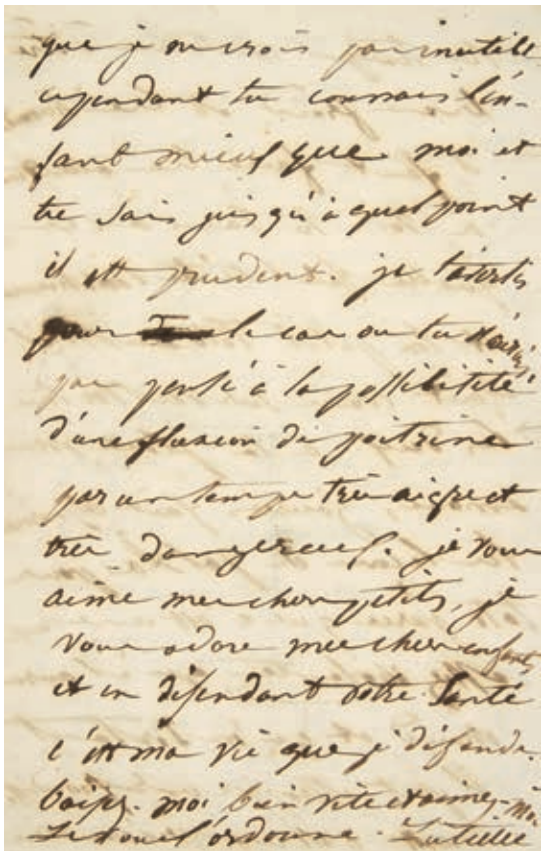 que je ne crois pas inutile
cependant tu connais l'en-
fant mieux que moi et
tu sais jusqu'à quel point
il est prudent. je t'avertis
pour le cas ou tu n'aurais
pas pensé à la possibilité
d'une fluxion de poitrine
par un temps très aigre et
très dangereux. je vous
aime mes chers petits, je
vous adore mes chers enfants
et en défendant votre santé
c'est ma vie que je défends.
baisez-moi bien vite et aimez-moi
je vous l'ordonne.